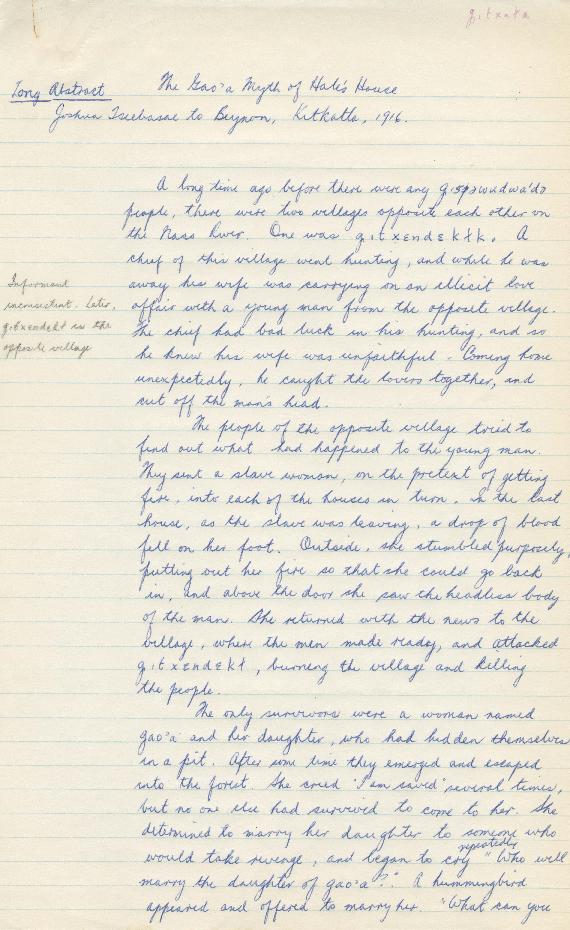 gitxała
Long Abstract
The Gao'a Myth of Hali's House
Joshua Tsiebasae to Beynon, Kitkatla, 1916.
A long time ago before there were any gispəwudwa'də
people, there were two villages opposite each other on
the Nass River. One was gitxɛndɛkłk. A
chief of this village went hunting, and while he was
away his wife was carrying on an illicit love
affair with a young man from the opposite village.
The chief had bad luck in his hunting, and so
he knew his wife was unfaithful. Coming home
unexpectedly, he caught the lovers together, and
cut off the man's head.
Informant
inconsistent. Later,
gitxɛndɛkł is the
opposite village
The people of the opposite village tried to
find out what had happened to the young man.
They sent a slave woman, on the pretext of getting
fire, into each of the houses in turn. In the last
house, as the slave was leaving, a drop of blood
fell on her foot. Outside, she stumbled purposely,
putting out her fire so that she could go back
in, and above the door she saw the headless body
of the man. She returned with the news to the
village, where the men made ready, and attacked
gitxɛndɛkł, burning the village and killing
the people.
The only survivors were a woman named
gao'a and her daughter, who had hidden themselves
in a pit. After some time they emerged and escaped
into the forest. She cried "I am saved" several times,
but no one else had survived to come to her. She
determined to marry her daughter to someone who
would take revenge, and began to cry repeatedly "Who will
marry the daughter of gao'a?" A hummingbird
appeared and offered to marry her. "What can you